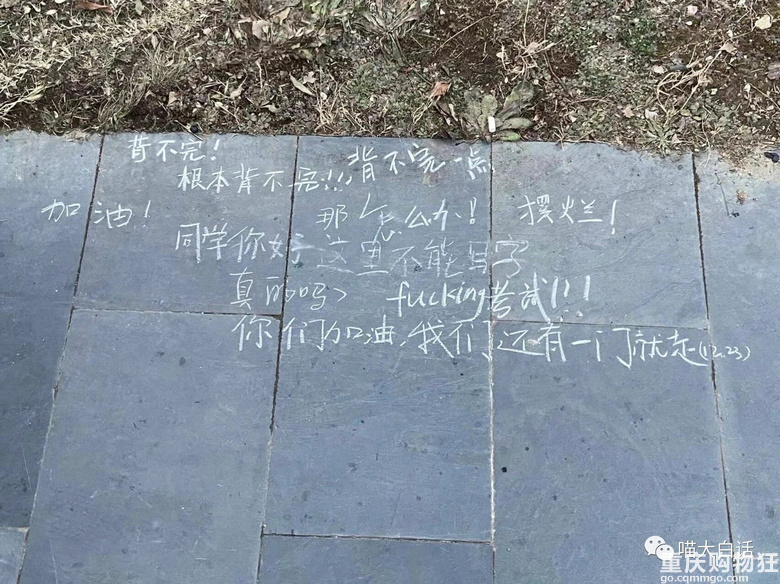 背不完!
根本背不完!!!
背不完一点
加油!
那怎么办!
摆烂!
同学你好这里不能写字
真的吗?
fucking考试!!!
你们加油,我们还有一门就走(12.23)
喵大白话
重庆购物狂
go.cqmmgo.com